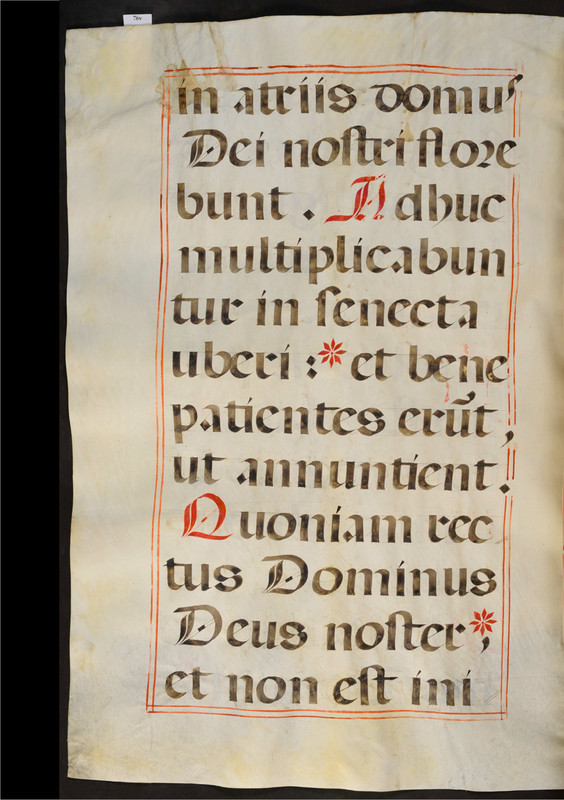 in atriis domus
Dei noſtri flore
bunt. Adhuc
multiplicabun
tur in ſenecta
uberi :* et bene
patientes erũt,
ut annuntient.
Quoniam rec
tus Dominus
Deus noſter*;
et non eſt ini